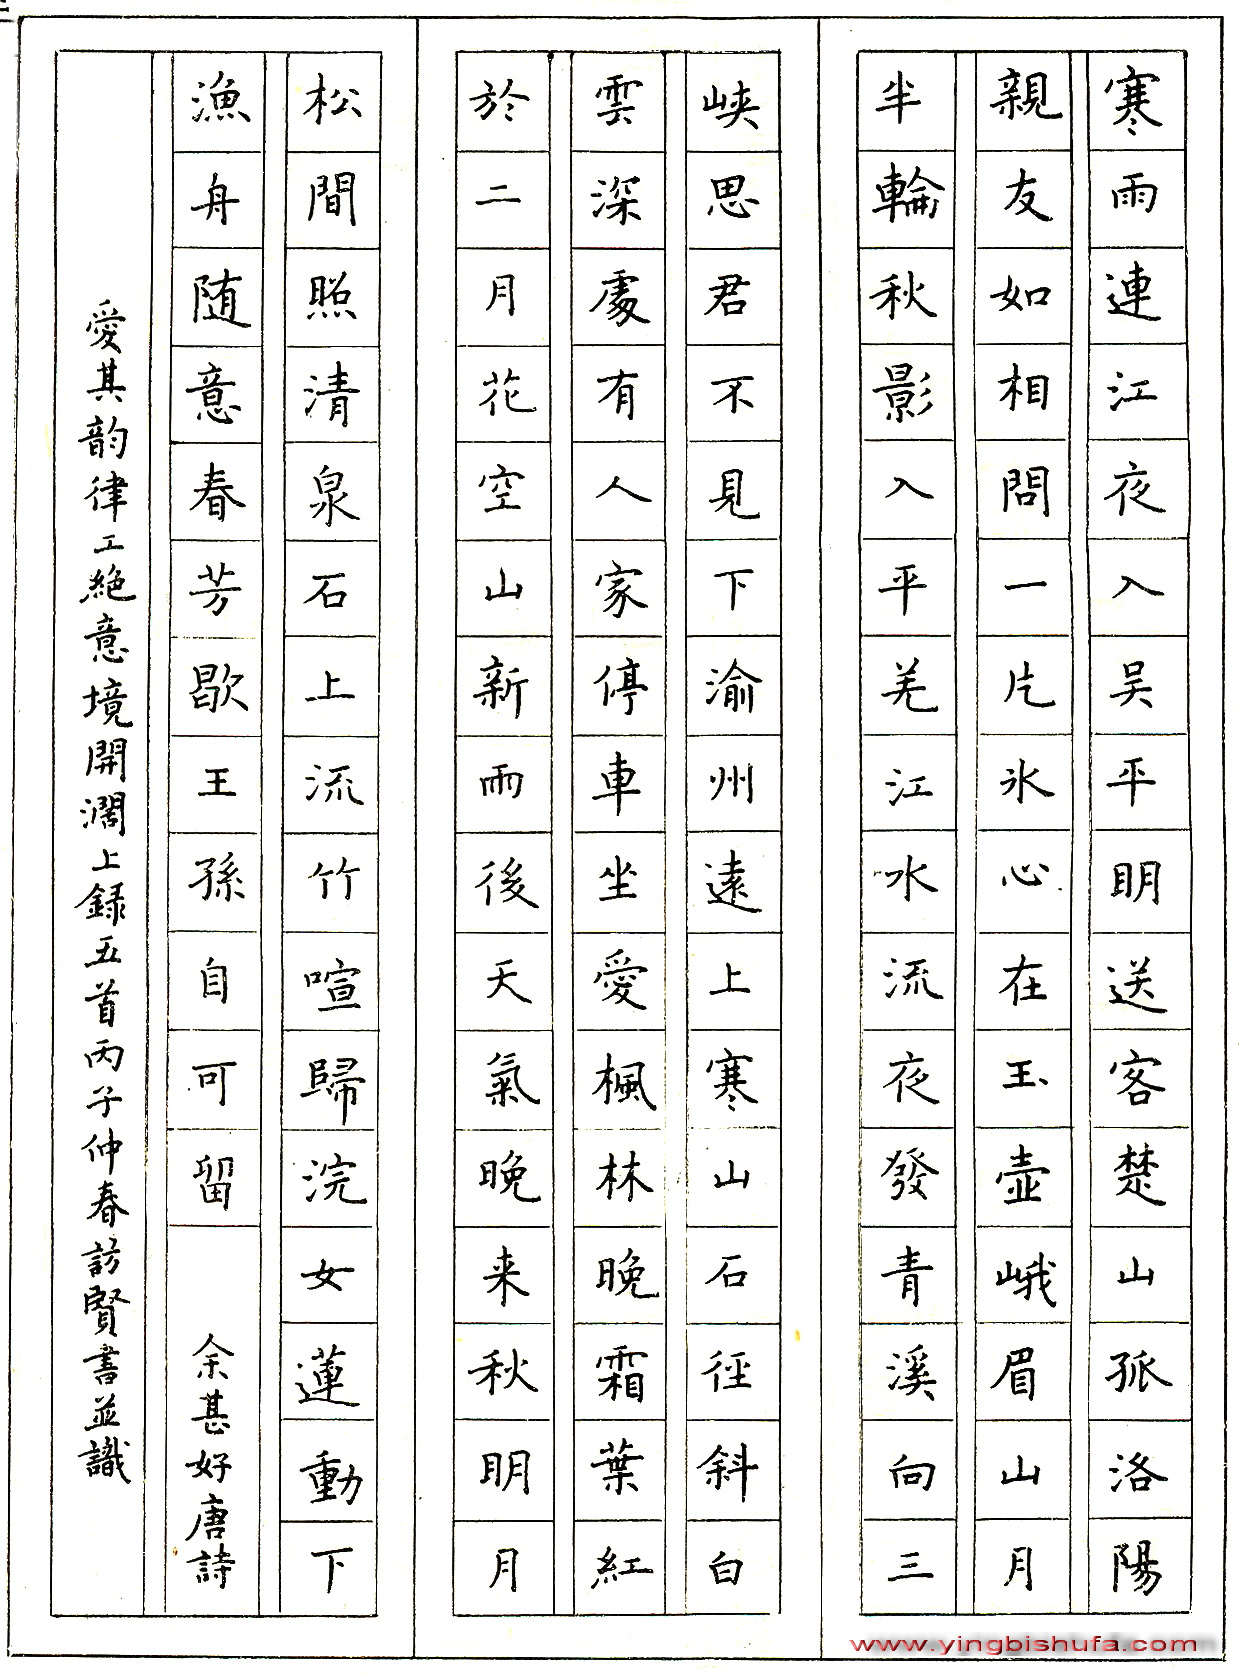 寒雨連江夜入吴平明送客楚山孤洛陽
親友如相問一片氷心在玉壺峨眉山月
半輪秋影入平羌江水流夜發青溪向三
峽思君不見下渝州遠上寒山石径斜白
雲深處有人家停車坐愛楓林晚霜葉紅
於二月花空山新雨後天氣晚来秋明月
松間照清泉石上流竹喧歸浣女蓮動下
漁舟随意春芳歇王孫自可留 余甚好唐詩
愛其韵律工絶意境開濶上録五首丙子仲春訪賢書並識
www.yingbishufa.com